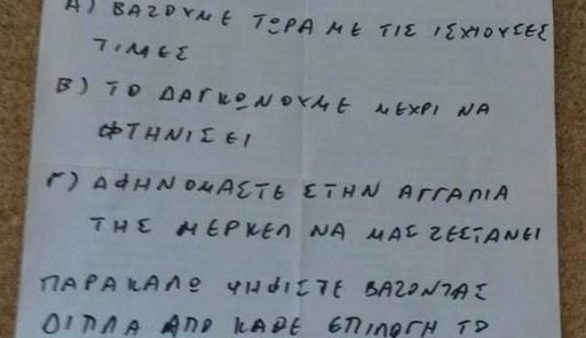 Α) ΒΑΖΟΥΜΕ ΤΩΡΑ ΜΕ ΤΙΣ ΙΣΧΗΟΥΣΕΣ
ΤΙΜΕΣ
Β) ΤΟ ΔΑΓΚΩΝΟΥΜΕ ΜΕΧΡΙ ΝΑ
ΦΤΗΝΙΣΕΙ
Γ) ΑΦΗΝΟΜΑΣΤΕ ΣΤΗΝ ΑΓΓΑΛΙΑ
ΤΗΣ ΜΕΡΚΕΛ ΝΑ ΜΑΣ ΖΕΣΤΑΝΕΙ
ΠΑΡΑΚΑΛΩ ΨΗΦΙΣΤΕ ΒΑΖΟΝΤΑΣ
ΔΙΠΛΑ ΑΠΟ ΚΑΘΕ ΕΠΙΛΟΓΗ ΤΟ